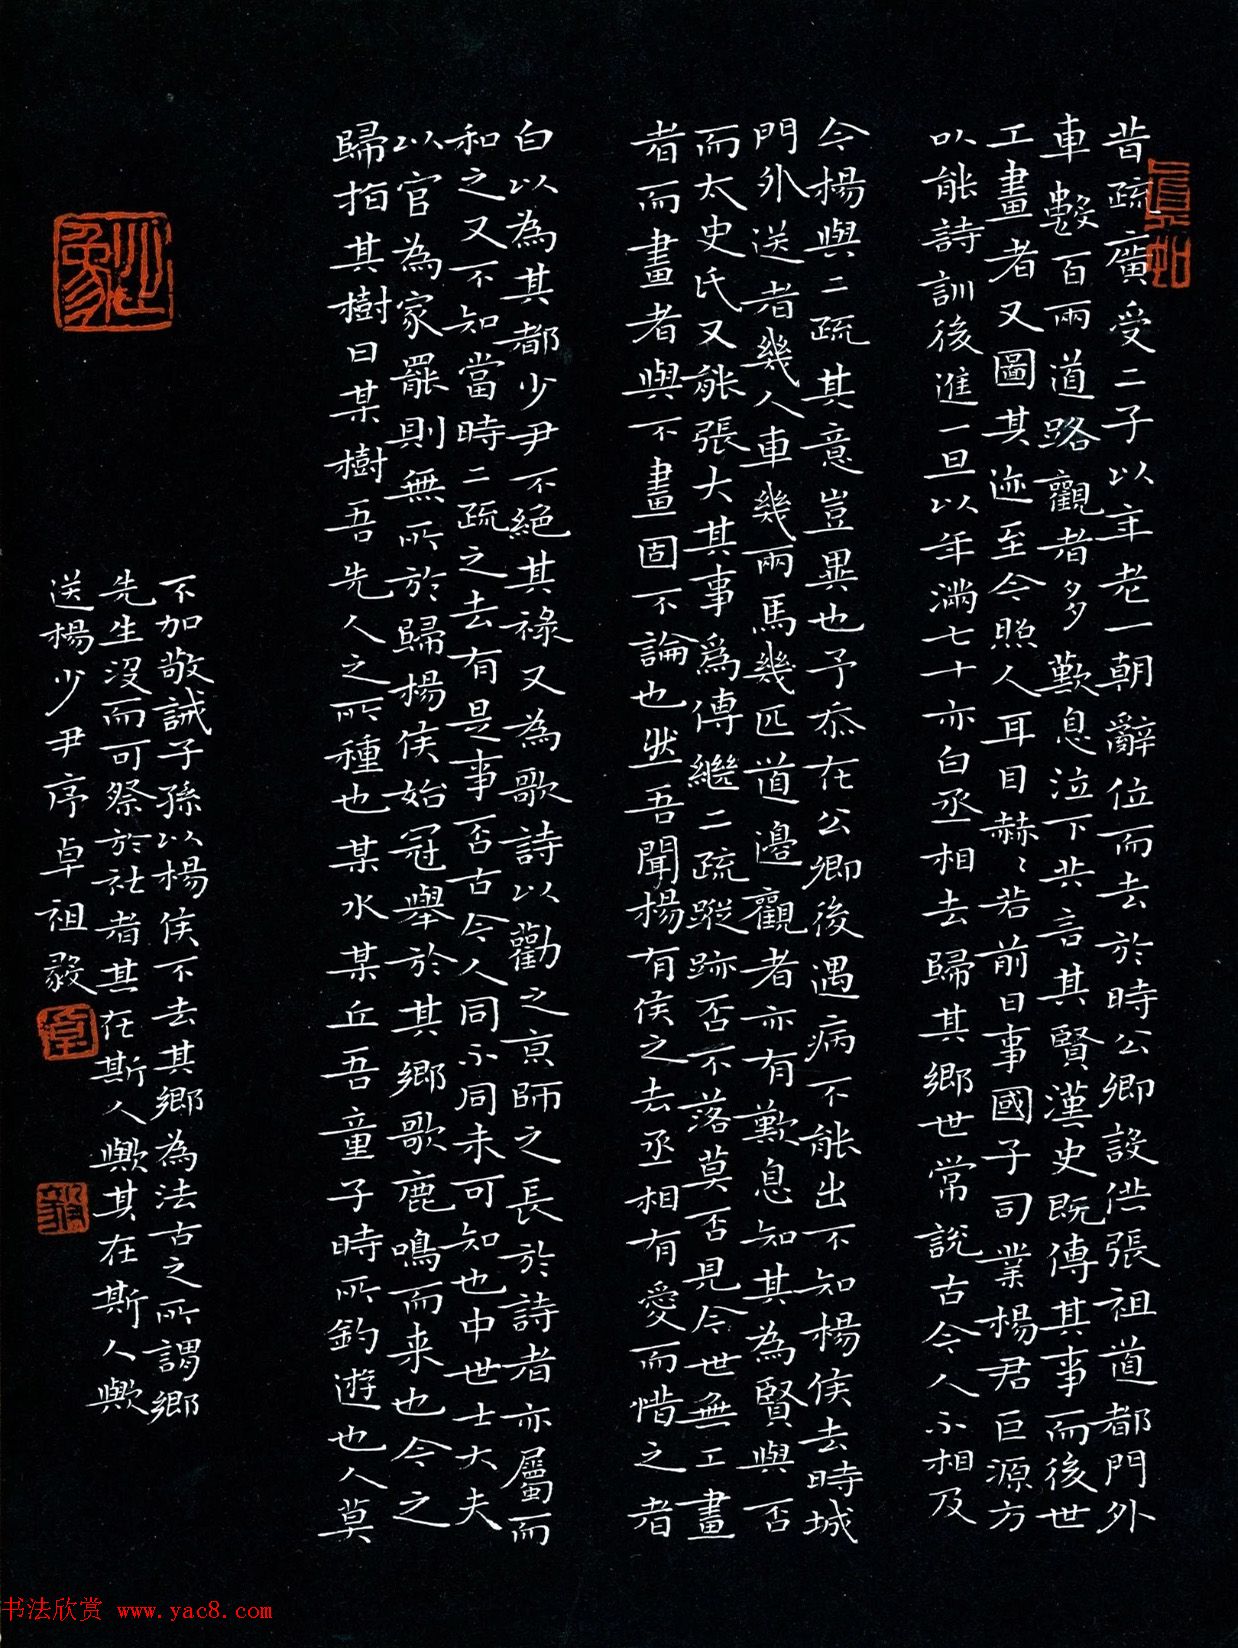 昔疏廣受二子以年老一朝辭位而去於時公卿設供張祖道都門外
車數百兩道路觀者多歎息泣下共言其賢漢史既傳其事而後世
工畫者又圖其迹至今照人耳目赫〻若前日事國子司業楊君巨源方
以能詩訓後進一旦以年滿七十亦白丞相去歸其鄉世常說古今人不相及
今楊與二疏其意豈異也予忝在公卿後遇病不能出不知楊侯去時城
門外送者幾人車幾兩馬幾匹道邊觀者亦有歎息知其為賢與否
而太史氏又能張大其事爲傳繼二疏蹤跡否不落莫否見今世無工畫
者而畫者與不畫固不論也然吾聞楊有侯之去丞相有愛而惜之者
白以為其都少尹不絕其祿又為歌詩以勸之京師之長於詩者亦屬而
和之又不知當時二疏之去有是事否古今人同不同未可知也中世士大夫
以官為家罷則無所於歸楊侯始冠舉於其鄉歌鹿鳴而来也今之
歸指其樹曰某樹吾先人之所種也某水某丘吾童子時所釣遊也人莫
不加敬誡子孫以楊侯不去其鄉為法古之所謂鄉
先生沒而可祭於社者其在斯人歟其在斯人歟
送楊少尹序卓祖毅
书法欣赏 www.yac8.com